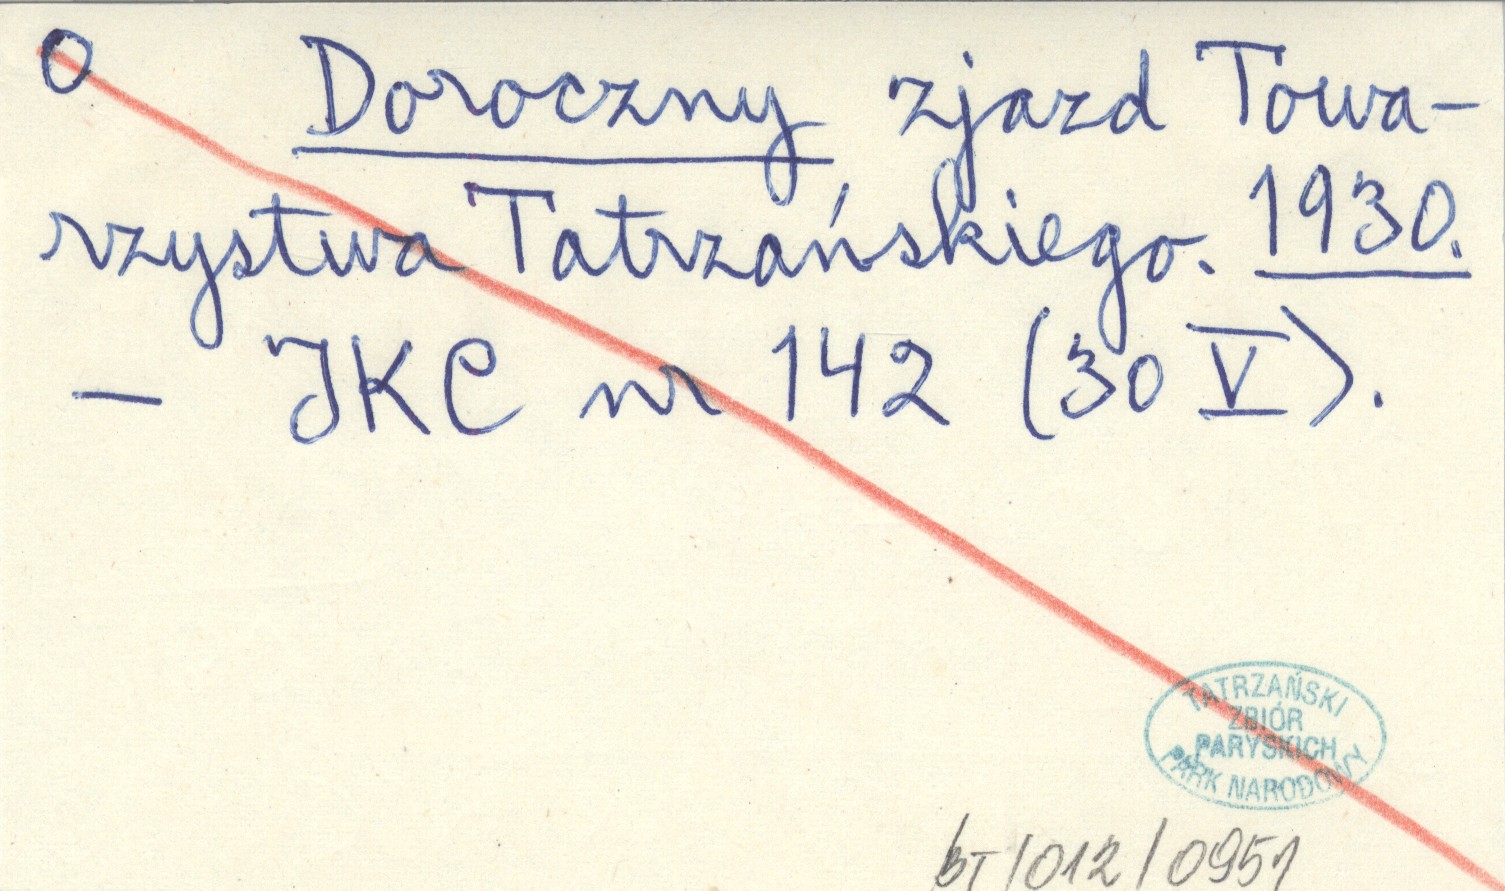 O Doroczny zjazd Towa-
rzystwa Tatrzańskiego. 1930.
— JKC nr 142 (30 V).
TATRZAŃSKI
ZBIÓR
PARYSKICH
PARK NARODOWY
BT/012/0951